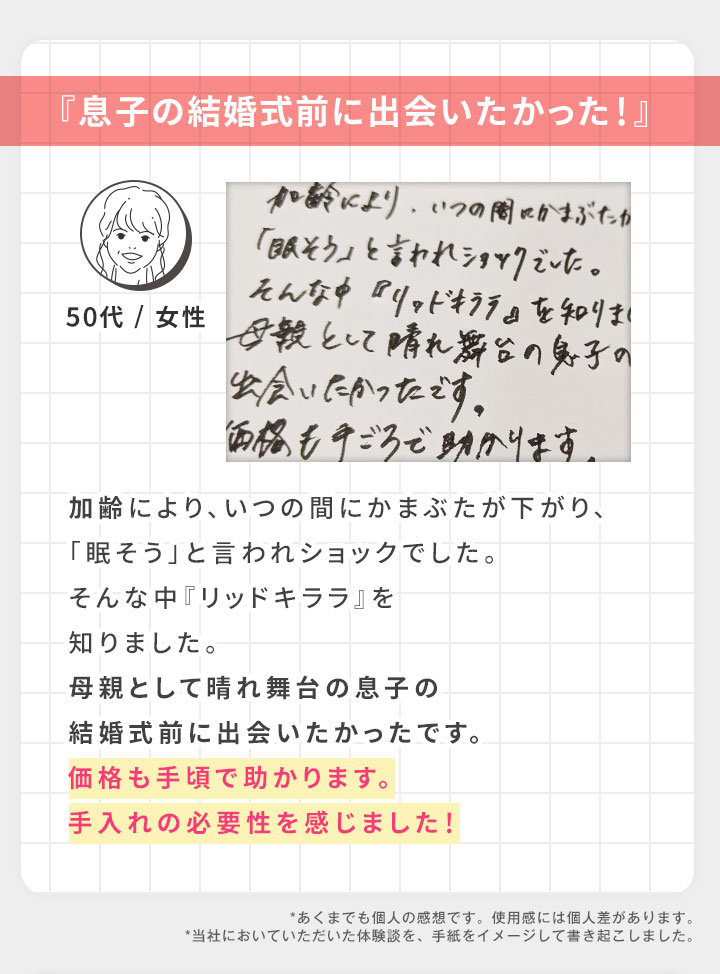 『息子の結婚式前に出会いたかった！』
50代 / 女性
加齢により、いつの間にかまぶたが
「眠そう」と言われショックでした。
そんな中『リッドキララ』を知りまし
母親として晴れ舞台の息子の
出会いたかったです。
価格も手ごろで助かります。
加齢により、いつの間にかまぶたが下がり、
「眠そう」と言われショックでした。
そんな中『リッドキララ』を
知りました。
母親として晴れ舞台の息子の
結婚式前に出会いたかったです。
価格も手頃で助かります。
手入れの必要性を感じました！
*あくまでも個人の感想です。使用感には個人差があります。
*当社においていただいた体験談を、手紙をイメージして書き起こしました。